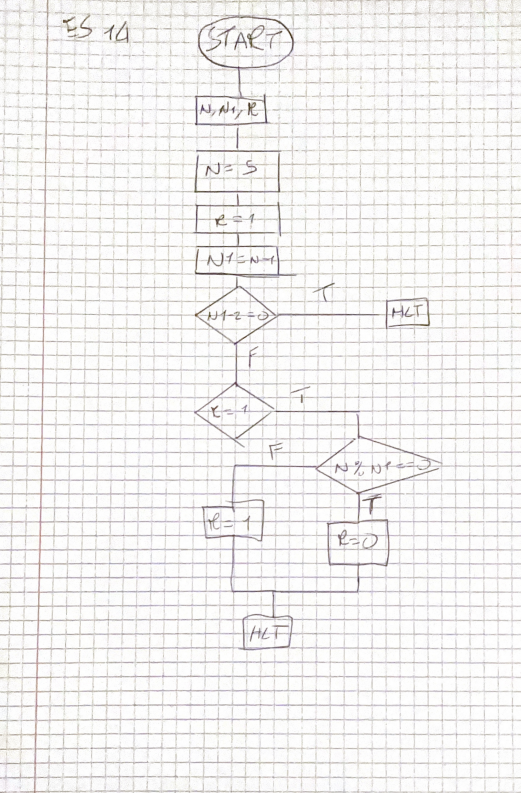 ES 14
START
N, N1, R
N = 5
R = 1
N1 = N-1
N1-2=0
T
HLT
F
R=1
T
F
N % N1 == 0
T
R = 1
R=0
HLT